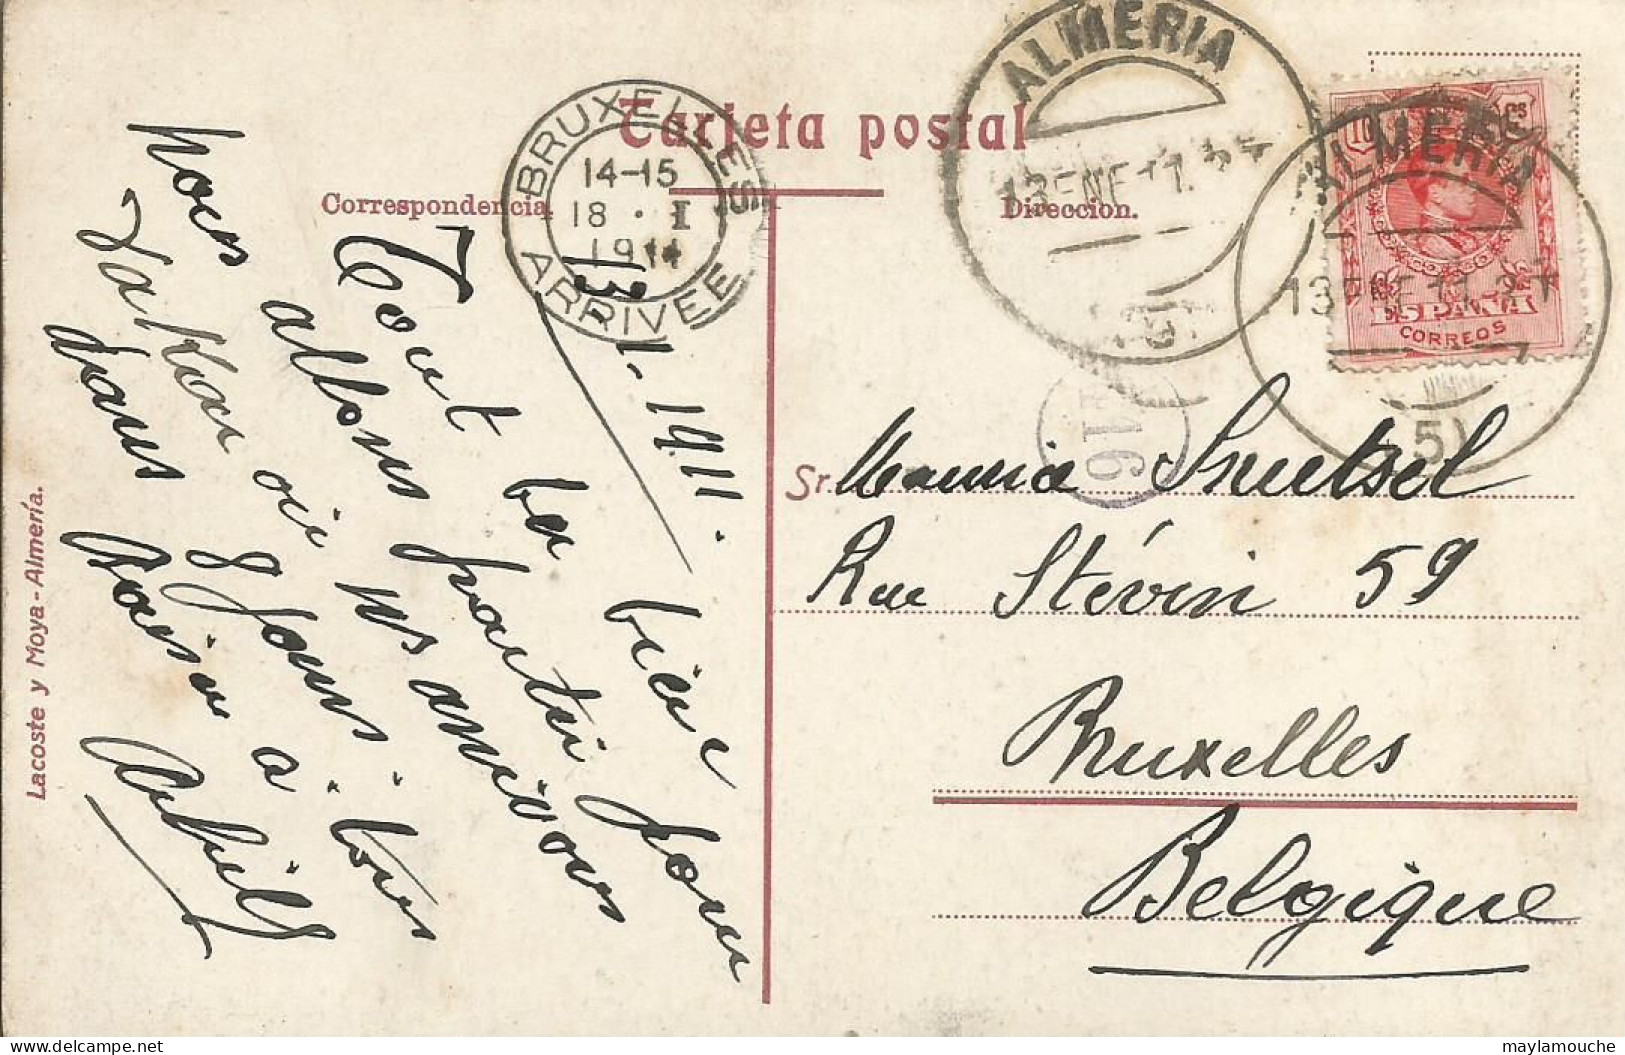 Tarjeta postal
Correspondencia.
Direccion.
BRUXELLES
14-15
18 · I
1911
ARRIVEE
ALMERIA
13 ENE 11.
ALMERIA
13 ENE 11.
10
ESPAÑA
CORREOS
916
13.1.1911.
Tout va bien
nous allons partir pour
Dakar où ns arrivons
dans 8 jours. bons
Baisers à
Sr. Maurice Snutsel
Rue Stévin 59
Bruxelles
Belgique
Lacoste y Moya - Almería.
delcampe.net
maylamouche